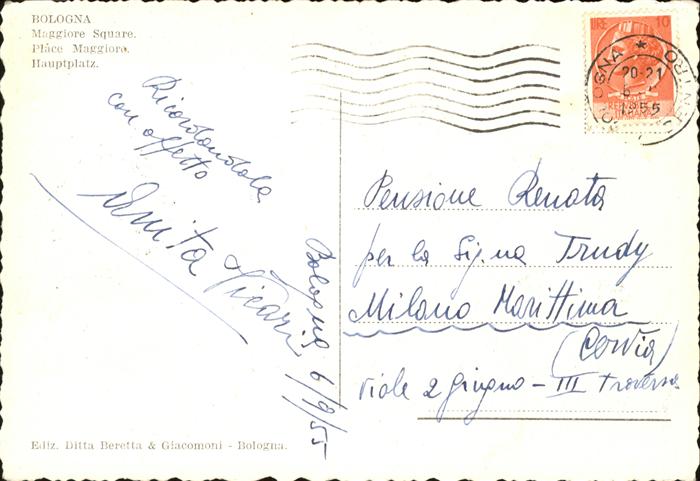 BOLOGNA
Maggiore Square.
Pláce Maggiore.
Hauptplatz.
LIRE 10
BOLOGNA CENTRO
20-21
1955
Ricordandola
con affetto
Vicari
Bologna 6/9/55
Pensione Renata
per la Sig.na Trudy
Milano Marittima
(Cervia)
Viale 2 giugno - III Traversa
Ediz. Ditta Beretta & Giacomoni - Bologna.